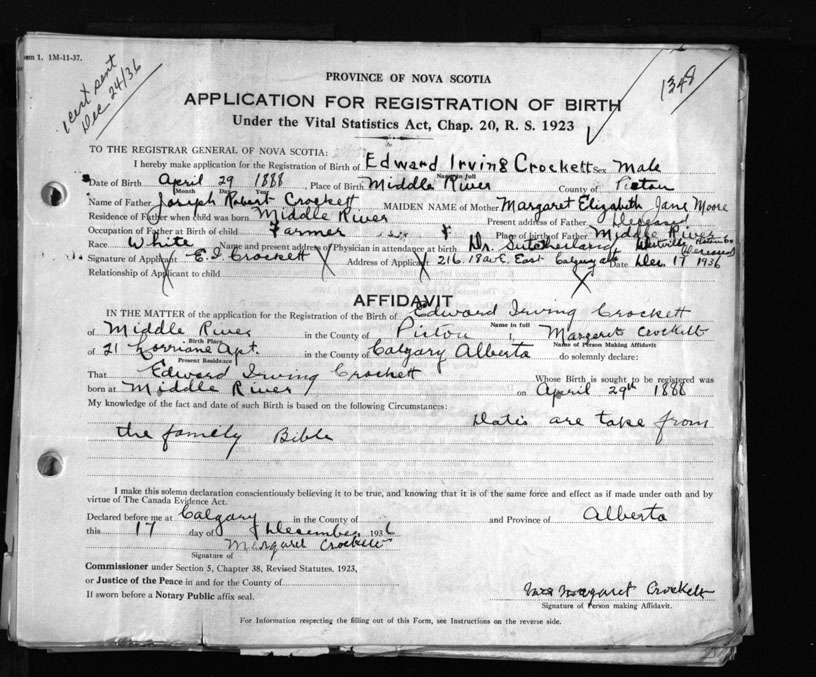 rm 1. 1M-11-37.
Cert sent
Dec 24/36
1348
PROVINCE OF NOVA SCOTIA
APPLICATION FOR REGISTRATION OF BIRTH
Under the Vital Statistics Act, Chap. 20, R. S. 1923
TO THE REGISTRAR GENERAL OF NOVA SCOTIA:
I hereby make application for the Registration of Birth of Edward Irving Crockett Sex Male
Name in full
Date of Birth April 29 1888, Place of Birth Middle River County of Pictou
Month Day Year
Name of Father Joseph Robert Crockett MAIDEN NAME of Mother Margaret Elizabeth Jane Moore
Residence of Father when child was born Middle River Present address of Father Deceased
Occupation of Father at Birth of child Farmer Place of birth of Father Middle River
Race White Name and present address of Physician in attendance at birth Dr. Sutherland Westville Deceased
Signature of Applicant E. I. Crockett Address of Applicant 216. 18 ave. East Calgary alt Date Dec. 17 1936
Relationship of Applicant to child
AFFIDAVIT
IN THE MATTER of the application for the Registration of the Birth of Edward Irving Crockett
Name in full
of Middle River in the County of Pictou I, Margaret Crockett
Birth Place Name of Person Making Affidavit
of 21 Lorriane Apt. in the County of Calgary Alberta do solemnly declare:
Present Residence
That Edward Irving Crockett Whose Birth is sought to be registered was
born at Middle River on April 29th 1888
My knowledge of the fact and date of such Birth is based on the following Circumstances:
Datis are take from
the famely Bible
I make this solemn declaration conscientiously believing it to be true, and knowing that it is of the same force and effect as if made under oath and by
virtue of The Canada Evidence Act.
Declared before me at Calgary in the County of and Province of Alberta
this 17 day of December 1936
Margaret Crockett
Signature of
Commissioner under Section 5, Chapter 38, Revised Statutes, 1923,
or Justice of the Peace in and for the County of
If sworn before a Notary Public affix seal.
Mrs Margaret Crockett
Signature of Person making Affidavit.
For Information respecting the filling out of this Form, see Instructions on the reverse side.